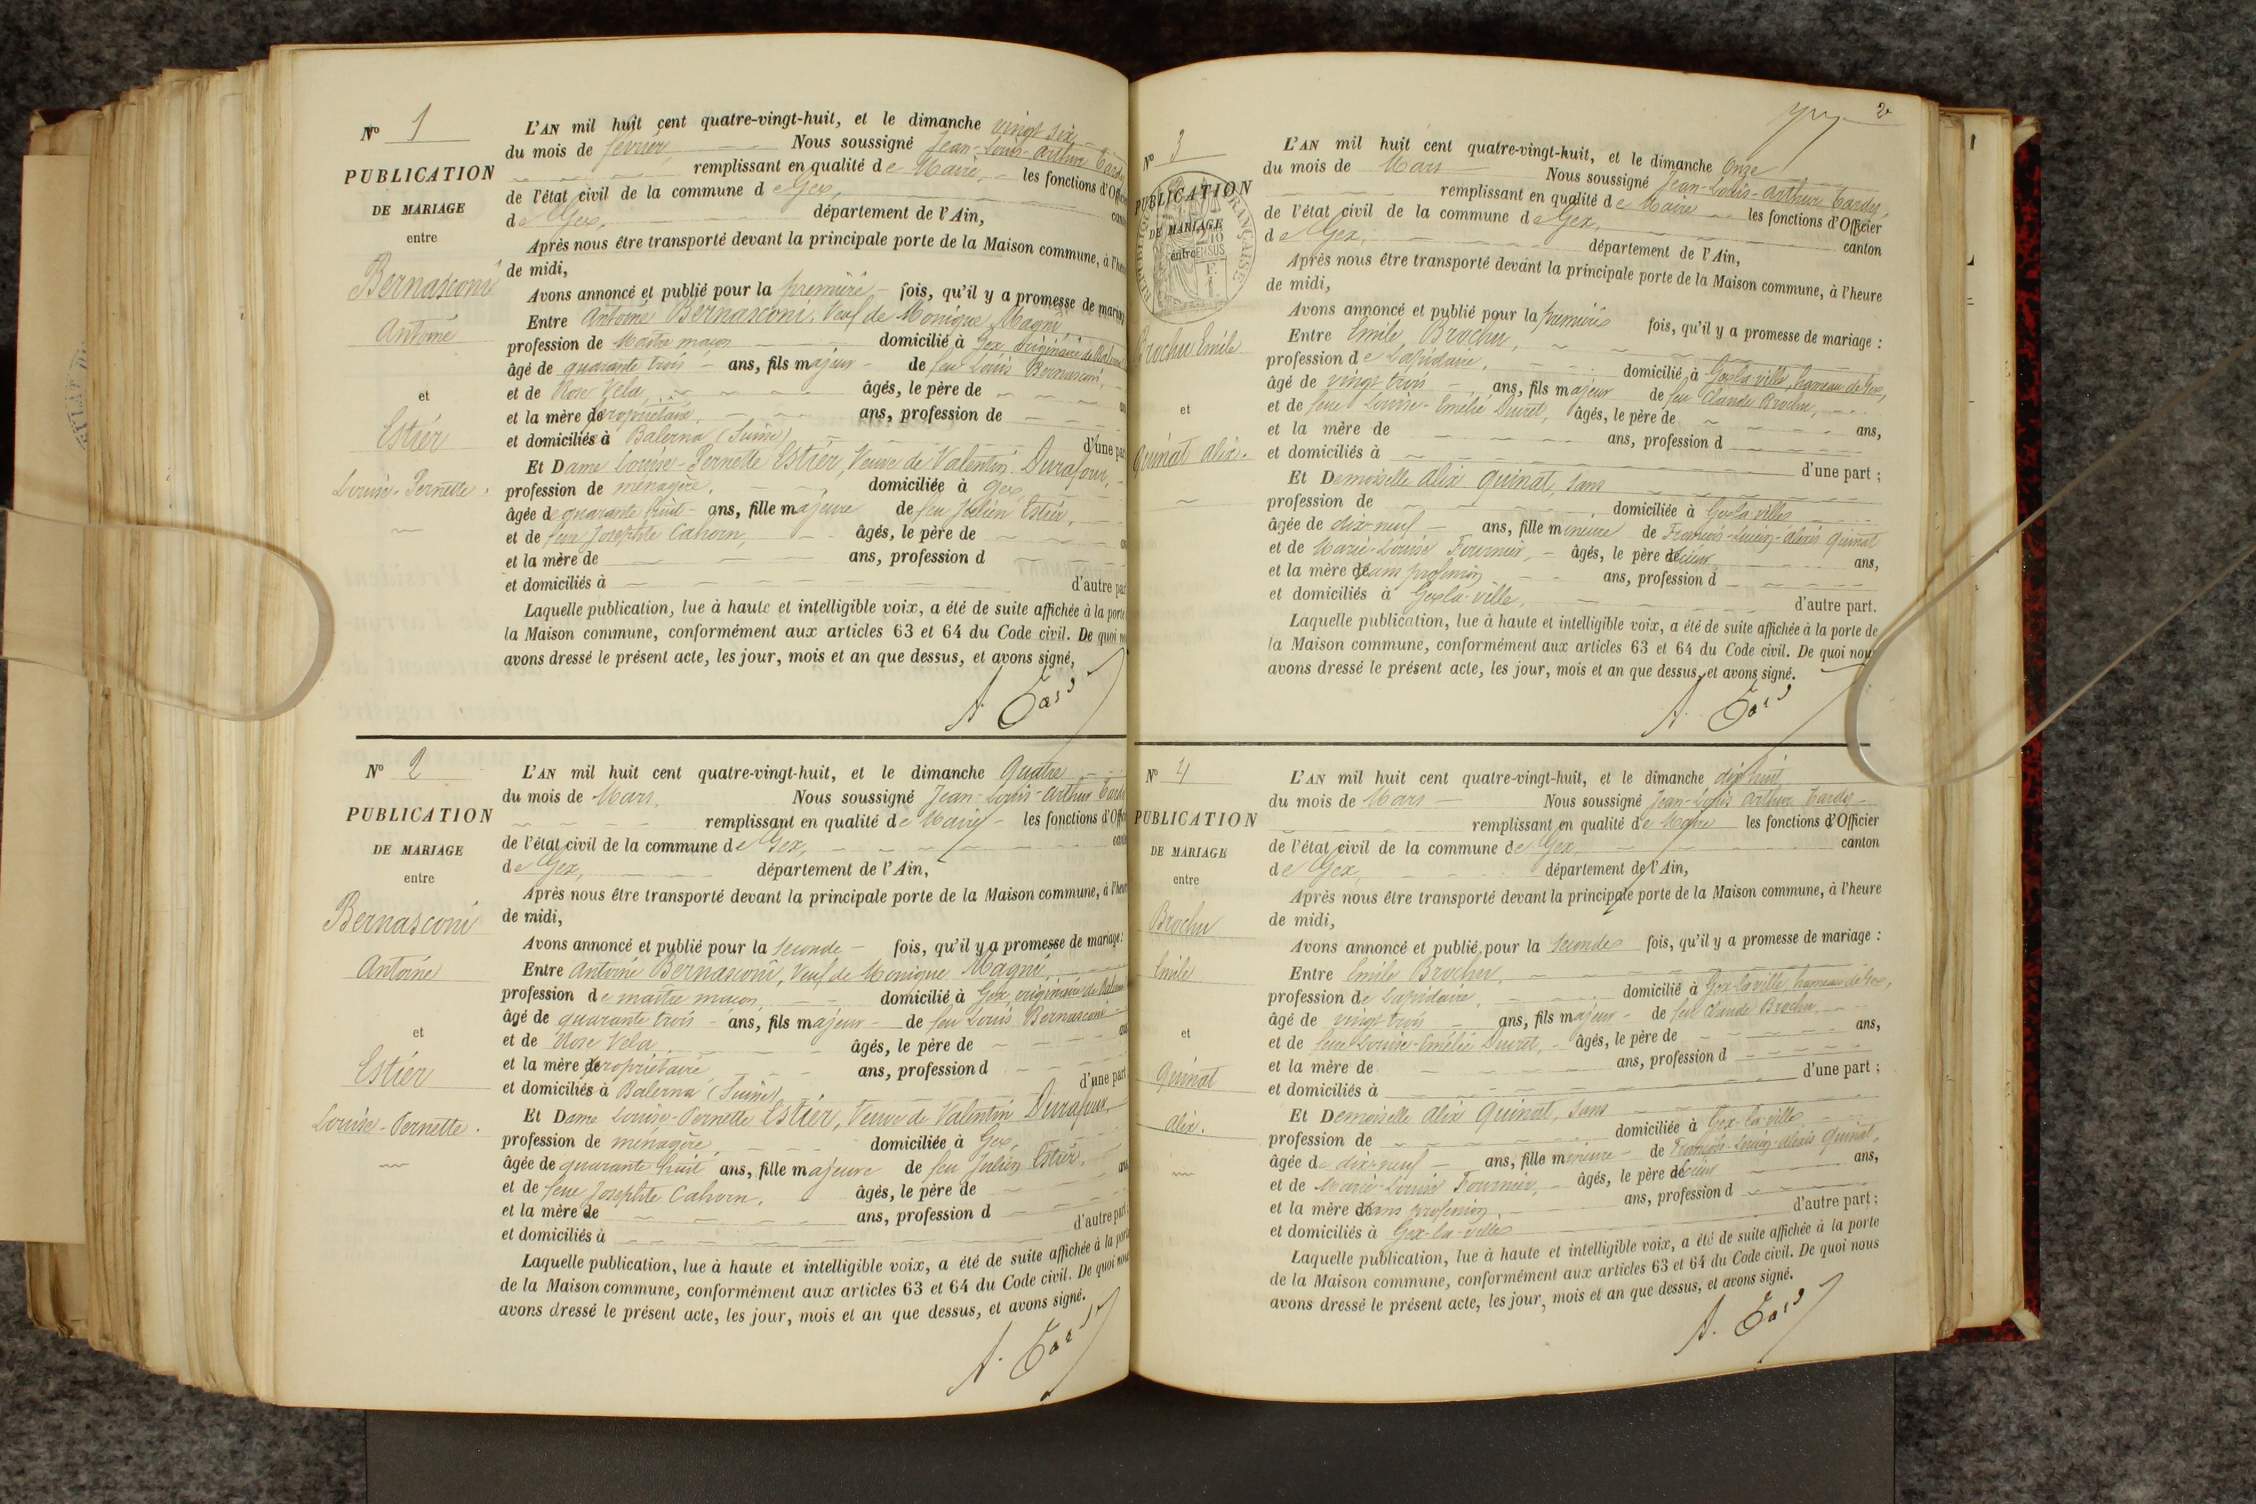 N° 1
PUBLICATION
DE MARIAGE
entre
Bernasconi
Antoine
et
Estier
Louise-Pernette.
L'AN mil huit cent quatre-vingt-huit, et le dimanche vingt six
du mois de février, Nous soussigné Jean-Louis-Arthur Tardy
remplissant en qualité de Maire, les fonctions d'Offici
de l'état civil de la commune de Gex, cant
de Gex, département de l'Ain,
Après nous être transporté devant la principale porte de la Maison commune, à l'heu
de midi,
Avons annoncé et publié pour la première fois, qu'il y a promesse de mariag
Entre Antoine Bernasconi, Veuf de Monique Magni,
profession de Maître maçon domicilié à Gex originaire de
âgé de quarante trois ans, fils majeur de feu Louis Bernasconi,
et de Rose Vela âgés, le père de
et la mère de propriétaire, ans, profession de
et domiciliés à Balerna (Suisse) d'une par
Et Dame Louise-Pernette Estier, Veuve de Valentin Durafour,
profession de ménagère, domiciliée à Gex,
âgée de quarante huit ans, fille majeure de feu Julien Estier,
et de feue Josephte Cahorn, âgés, le père de
et la mère de ans, profession d
et domiciliés à d'autre par
Laquelle publication, lue à haute et intelligible voix, a été de suite affichée à la porte
la Maison commune, conformément aux articles 63 et 64 du Code civil. De quoi no
avons dressé le présent acte, les jour, mois et an que dessus, et avons signé,
A. Tardy
N° 2
PUBLICATION
DE MARIAGE
entre
Bernasconi
Antoine
et
Estier
Louise-Pernette.
L'AN mil huit cent quatre-vingt-huit, et le dimanche Quatre
du mois de Mars, Nous soussigné Jean-Louis-Arthur Tardy
remplissant en qualité de Maire les fonctions d'Offi
de l'état civil de la commune de Gex, cant
de Gex, département de l'Ain,
Après nous être transporté devant la principale porte de la Maison commune, à l'heur
de midi,
Avons annoncé et publié pour la seconde fois, qu'il y a promesse de mariage :
Entre Antoine Bernasconi, Veuf de Monique Magni,
profession de maître maçon, domicilié à Gex, originaire de
âgé de quarante trois ans, fils majeur de feu Louis Bernasconi
et de Rose Vela âgés, le père de
et la mère de propriétaire, ans, profession d
et domiciliés à Balerna (Suisse) d'une part
Et Dame Louise-Pernette Estier, Veuve de Valentin Durafour
profession de ménagère, domiciliée à Gex,
âgée de quarante huit ans, fille majeure de feu Julien Estier,
et de feue Josephte Cahorn, âgés, le père de
et la mère de ans, profession d
et domiciliés à d'autre part
Laquelle publication, lue à haute et intelligible voix, a été de suite affichée à la porte
de la Maison commune, conformément aux articles 63 et 64 du Code civil. De quoi nous
avons dressé le présent acte, les jour, mois et an que dessus, et avons signé.
A. Tardy
2
N° 3
PUBLICATION
DE MARIAGE
entre
Brochu Emile
et
Quinat Alix.
L'AN mil huit cent quatre-vingt-huit, et le dimanche Onze
du mois de Mars Nous soussigné Jean-Louis-Arthur Tardy,
remplissant en qualité de Maire les fonctions d'Officier
de l'état civil de la commune de Gex, canton
de Gex, département de l'Ain,
Après nous être transporté devant la principale porte de la Maison commune, à l'heure
de midi,
Avons annoncé et publié pour la première fois, qu'il y a promesse de mariage :
Entre Emile Brochu,
profession de Lapidaire, domicilié à Gex-la-ville, hameau de Gex,
âgé de vingt trois ans, fils majeur de feu Claude Brochu,
et de feue Louise-Emélie Duret, âgés, le père de ans,
et la mère de ans, profession d
et domiciliés à d'une part ;
Et Demoiselle Alix Quinat, sans
profession de domiciliée à Gex-la-ville
âgée de dix-neuf ans, fille mineure de François-Lucien-Alexis Quinat
et de Marie-Louise Fournier, âgés, le père de ans,
et la mère de sans profession ans, profession d
et domiciliés à Gex-la-ville, d'autre part.
Laquelle publication, lue à haute et intelligible voix, a été de suite affichée à la porte de
la Maison commune, conformément aux articles 63 et 64 du Code civil. De quoi nous
avons dressé le présent acte, les jour, mois et an que dessus, et avons signé.
A. Tardy
N° 4
PUBLICATION
DE MARIAGE
entre
Brochu
Emile
et
Quinat
Alix.
L'AN mil huit cent quatre-vingt-huit, et le dimanche dix huit
du mois de Mars Nous soussigné Jean-Louis Arthur Tardy
remplissant en qualité de Maire les fonctions d'Officier
de l'état civil de la commune de Gex canton
de Gex, département de l'Ain,
Après nous être transporté devant la principale porte de la Maison commune, à l'heure
de midi,
Avons annoncé et publié pour la seconde fois, qu'il y a promesse de mariage :
Entre Emile Brochu,
profession de Lapidaire, domicilié à Gex-la-ville, hameau de Gex,
âgé de vingt trois ans, fils majeur de feu Claude Brochu,
et de feue Louise-Emélie Duret, âgés, le père de ans,
et la mère de ans, profession d
et domiciliés à d'une part ;
Et Demoiselle Alix Quinat, sans
profession de domiciliée à Gex-la-ville
âgée de dix-neuf ans, fille mineure de François-Lucien-Alexis Quinat,
et de Marie-Louise Fournier, âgés, le père de ans,
et la mère de sans profession, ans, profession d
et domiciliés à Gex-la-ville d'autre part ;
Laquelle publication, lue à haute et intelligible voix, a été de suite affichée à la porte
de la Maison commune, conformément aux articles 63 et 64 du Code civil. De quoi nous
avons dressé le présent acte, les jour, mois et an que dessus, et avons signé.
A. Tardy